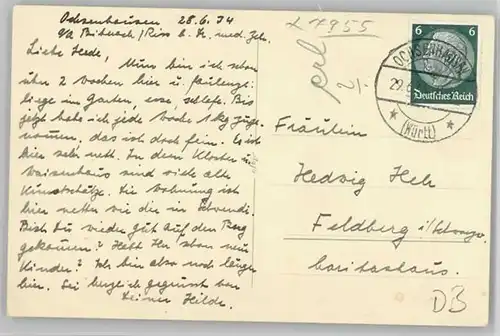 Ochsenhausen 28.6.34
b/ Biberach / Riss b. Hr. med.
Liebe Hede,
Nun bin ich schon
über 2 Wochen hier u. faulenze:
liege im Garten, esse, schlafe. Bis
jetzt habe ich jede Woche 1 kg zuge-
nommen, das ist doch fein. Es ist
hier sehr nett. In dem Kloster u.
Waisenhaus sind viele alte
Kunstschätze. Die Wohnung ist
hier netter wie die in
Bist du wieder gut auf den Berg
gekommen? Habt Ihr schon neue
Kinder? Ich bin also noch länger
hier. Sei herzlich gegrüsst von
Deiner Hilde.
L 4955
2/-
6 6
Deutsches Reich
OCHSENHAUSEN
29.6.
(Württ)
Fräulein
Hedwig Heh
Feldberg i/Schwarzw.
Caritashaus.
DB